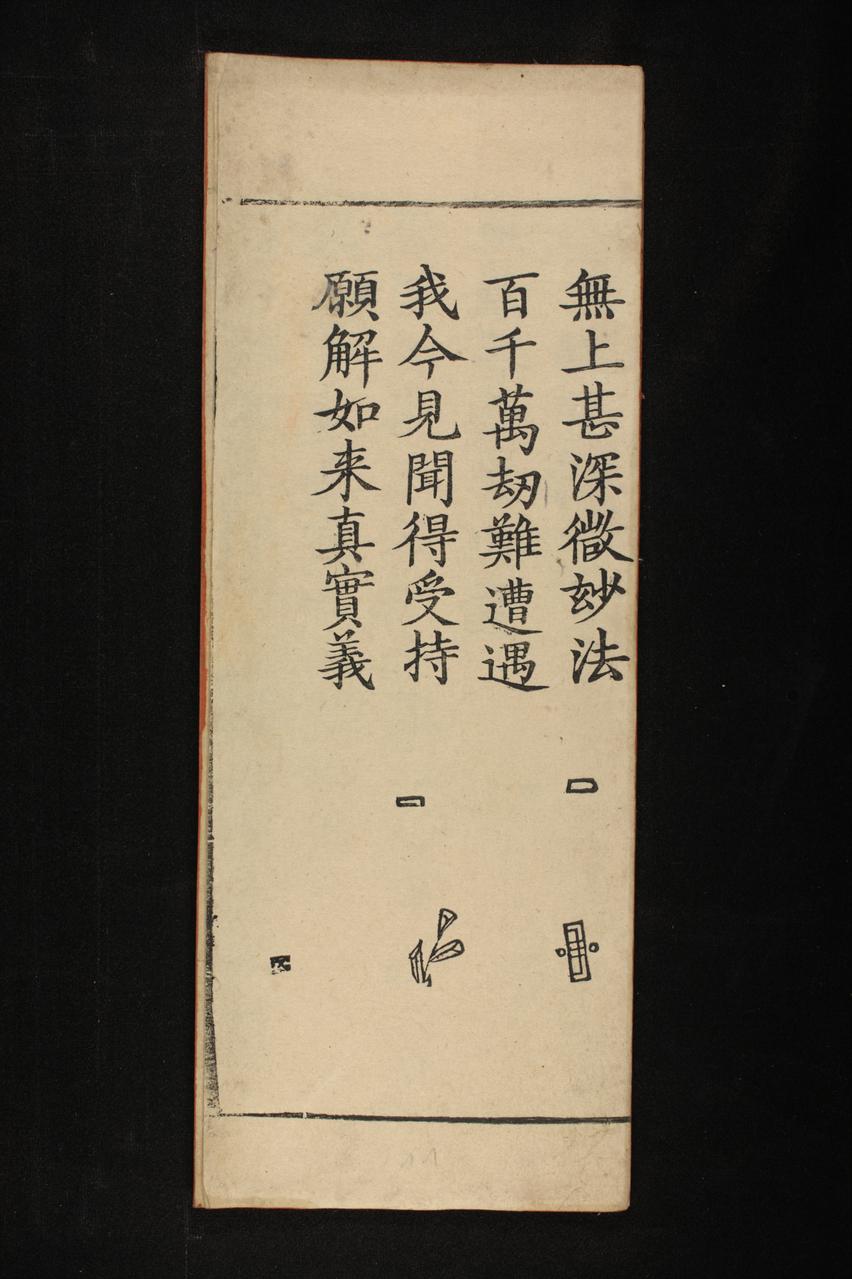 無上甚深微妙法
百千萬劫難遭遇
我今見聞得受持
願解如来真實義
11